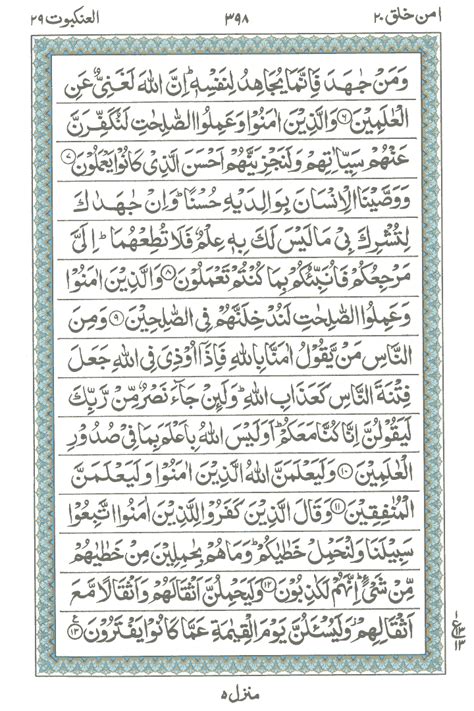 امن خلق ٢٠ ٣٩٨ العنكبوت ٢٩
وَمَنْ جٰهَدَ فَاِنَّمَا يُجَاهِدُ لِنَفْسِهٖ ؕ اِنَّ اللّٰهَ لَغَنِىٌّ عَنِ
الْعٰلَمِيْنَ ۝٦ وَالَّذِيْنَ اٰمَنُوْا وَعَمِلُوا الصّٰلِحٰتِ لَنُكَفِّرَنَّ
عَنْهُمْ سَيِّاٰتِهِمْ وَلَنَجْزِيَنَّهُمْ اَحْسَنَ الَّذِىْ كَانُوْا يَعْمَلُوْنَ ۝٧
وَوَصَّيْنَا الْاِنْسَانَ بِوَالِدَيْهِ حُسْنًا ؕ وَاِنْ جٰهَدٰكَ
لِتُشْرِكَ بِىْ مَا لَيْسَ لَكَ بِهٖ عِلْمٌ فَلَا تُطِعْهُمَا ؕ اِلَىَّ
مَرْجِعُكُمْ فَاُنَبِّئُكُمْ بِمَا كُنْتُمْ تَعْمَلُوْنَ ۝٨ وَالَّذِيْنَ اٰمَنُوْا
وَعَمِلُوا الصّٰلِحٰتِ لَنُدْخِلَنَّهُمْ فِى الصّٰلِحِيْنَ ۝٩ وَمِنَ
النَّاسِ مَنْ يَّقُوْلُ اٰمَنَّا بِاللّٰهِ فَاِذَاۤ اُوْذِىَ فِى اللّٰهِ جَعَلَ
فِتْنَةَ النَّاسِ كَعَذَابِ اللّٰهِ ؕ وَلَئِنْ جَآءَ نَصْرٌ مِّنْ رَّبِّكَ
لَيَقُوْلُنَّ اِنَّا كُنَّا مَعَكُمْ ؕ اَوَلَيْسَ اللّٰهُ بِاَعْلَمَ بِمَا فِىْ صُدُوْرِ
الْعٰلَمِيْنَ ۝١٠ وَلَيَعْلَمَنَّ اللّٰهُ الَّذِيْنَ اٰمَنُوْا وَلَيَعْلَمَنَّ
الْمُنٰفِقِيْنَ ۝١١ وَقَالَ الَّذِيْنَ كَفَرُوْا لِلَّذِيْنَ اٰمَنُوا اتَّبِعُوْا
سَبِيْلَنَا وَلْنَحْمِلْ خَطٰيٰكُمْ ؕ وَمَا هُمْ بِحٰمِلِيْنَ مِنْ خَطٰيٰهُمْ
مِّنْ شَىْءٍ ؕ اِنَّهُمْ لَكٰذِبُوْنَ ۝١٢ وَلَيَحْمِلُنَّ اَثْقَالَهُمْ وَاَثْقَالًا مَّعَ
اَثْقَالِهِمْ ؗ وَلَيُسْئَلُنَّ يَوْمَ الْقِيٰمَةِ عَمَّا كَانُوْا يَفْتَرُوْنَ ۝١٣
ع ١٣ ١٣
منزل ٥